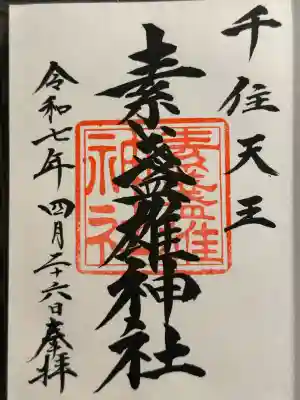 千住天王
素盞雄神社
素盞雄
神社
令和七年 四月二十六日奉拝